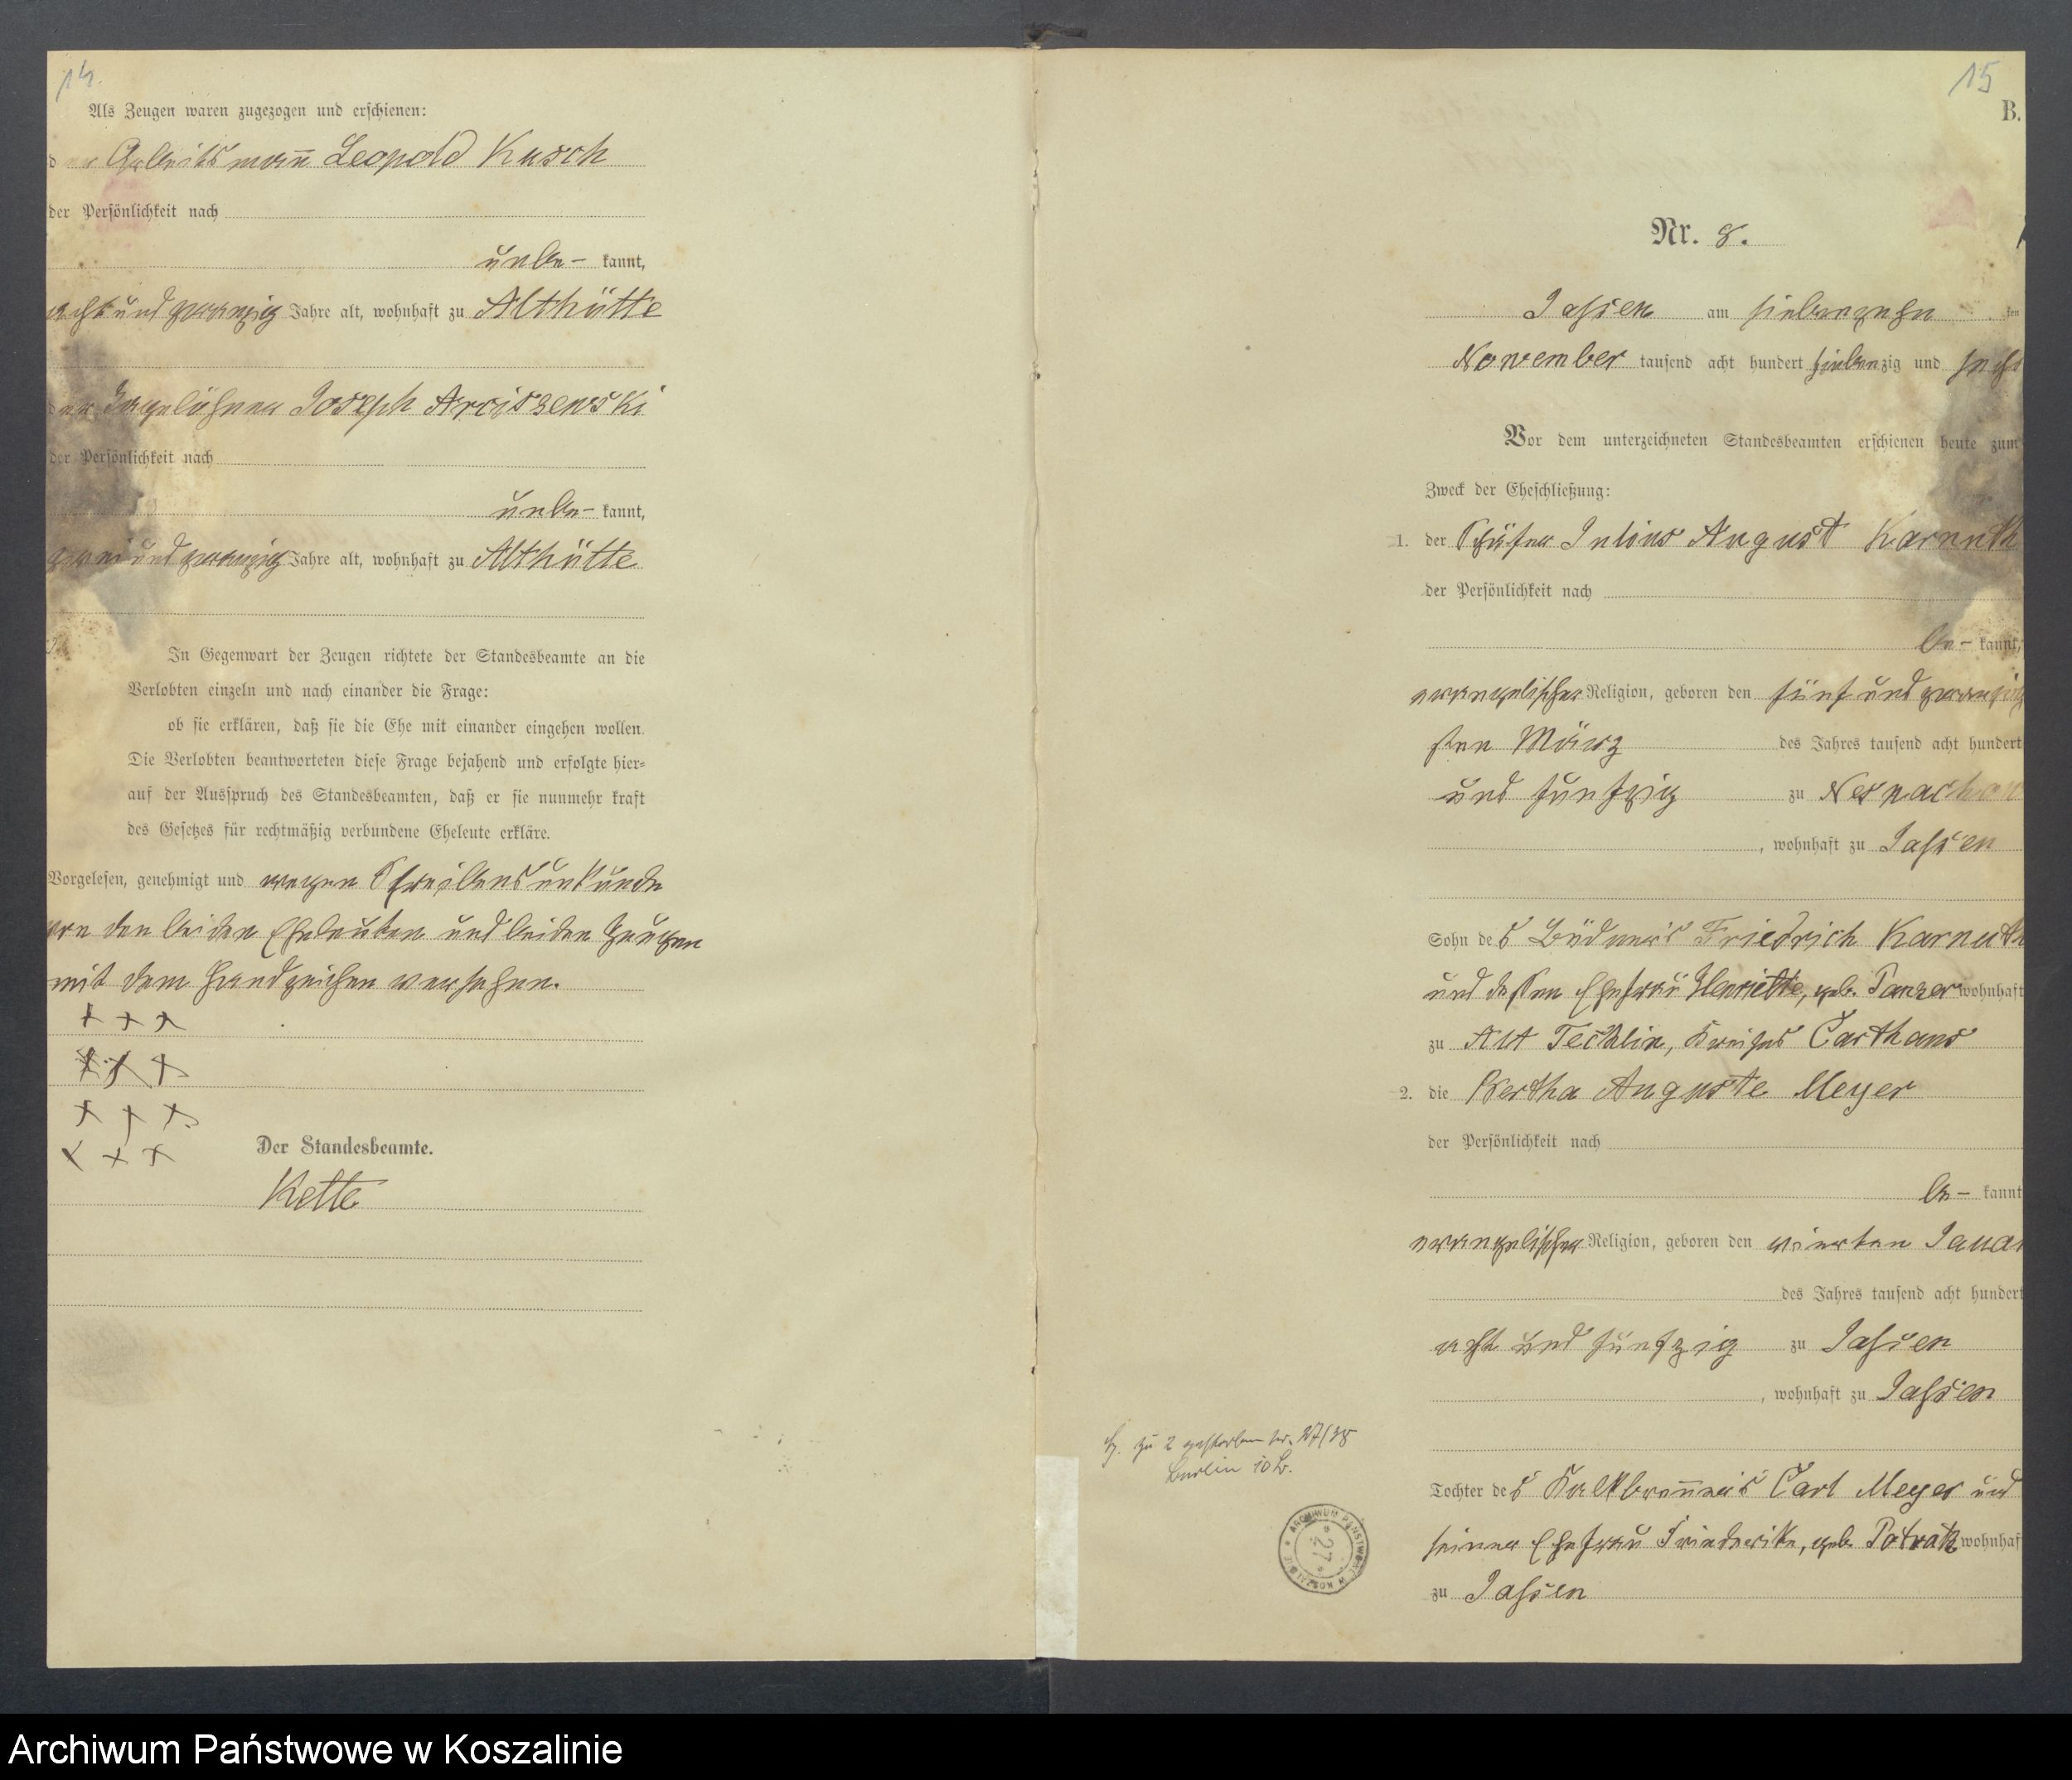 14.
Als Zeugen waren zugezogen und erschienen:
der Arbeitsmann Leopold Kusch
der Persönlichkeit nach
unbe- kannt,
acht und zwanzig Jahre alt, wohnhaft zu Althütte
der Tagelöhner Joseph Arciszewski
der Persönlichkeit nach
unbe- kannt,
zwei und zwanzig Jahre alt, wohnhaft zu Althütte
In Gegenwart der Zeugen richtete der Standesbeamte an die
Verlobten einzeln und nach einander die Frage:
ob sie erklären, daß sie die Ehe mit einander eingehen wollen.
Die Verlobten beantworteten diese Frage bejahend und erfolgte hier=
auf der Ausspruch des Standesbeamten, daß er sie nunmehr kraft
des Gesetzes für rechtmäßig verbundene Eheleute erkläre.
Vorgelesen, genehmigt und wegen Schreibensunkunde
von den beiden Eheleuten und beiden Zeugen
mit dem Handzeichen versehen.
+ + +
+ + +
+ + +
+ + +
Der Standesbeamte.
Kette
15
B.
Nr. 8.
Jassen am siebenzehn ten
November tausend acht hundert siebenzig und sechs
Vor dem unterzeichneten Standesbeamten erschienen heute zum
Zweck der Eheschließung:
1. der Schäfer Julius August Karnuth
der Persönlichkeit nach
be- kannt,
evangelischer Religion, geboren den fünf und zwanzig
sten März des Jahres tausend acht hundert
und fünfzig zu Nesnachow
, wohnhaft zu Jassen
Sohn des Büdners Friedrich Karnuth
und dessen Ehefrau Henriette, geb. Panzer wohnhaft
zu Alt Kreises Carthaus
2. die Bertha Auguste Meyer
der Persönlichkeit nach
be- kannt
evangelischer Religion, geboren den vierten Januar
des Jahres tausend acht hundert
acht und fünfzig zu Jassen
, wohnhaft zu Jassen
Tochter des Kalkbrenners Carl Meyer und
seiner Ehefrau Friederike, geb. Potratz wohnhaf
zu Jassen
zu 2 gestorben Nr. 27/38
Berlin 10 b.
ARCHIWUM PAŃSTWOWE W KOSZALINIE
* 27 *
Archiwum Państwowe w Koszalinie